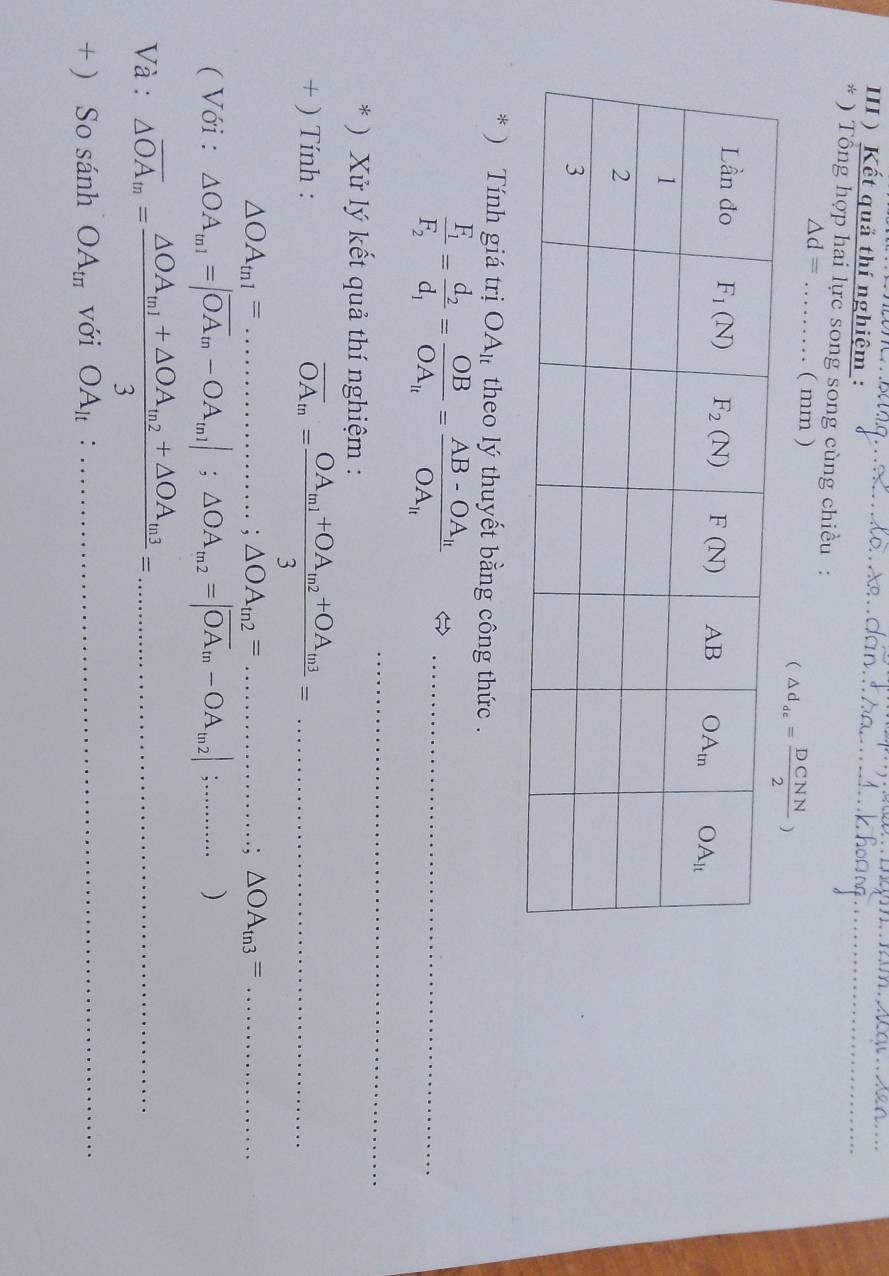 tò. xo. dãn. ra. 1. khoảng
III ) Kết quả thí nghiệm :
* ) Tổng hợp hai lực song song cùng chiều :
Δd = ......... ( mm )
( Δd_dc = DCNN/2 )
Lần đo F₁ (N) F₂ (N) F (N) AB OA_tn OA_lt
1
2
3
* ) Tính giá trị OA_lt theo lý thuyết bằng công thức .
F₁/F₂ = d₂/d₁ = OB/OA_lt = (AB - OA_lt)/OA_lt ⇔ ........................................
........................................
* ) Xử lý kết quả thí nghiệm :
+ ) Tính : \overline{OA_tn} = (OA_tn1 + OA_tn2 + OA_tn3)/3 = ........................................
ΔOA_tn1 = ....................... ; ΔOA_tn2 = ....................... ; ΔOA_tn3 = .......................
( Với : ΔOA_tn1 = |\overline{OA_tn} − OA_tn1| ; ΔOA_tn2 = |\overline{OA_tn} − OA_tn2| ;........... )
Và : \overline{ΔOA_tn} = (ΔOA_tn1 + ΔOA_tn2 + ΔOA_tn3)/3 = ........................................
+ ) So sánh OA_tn với OA_lt : ........................................